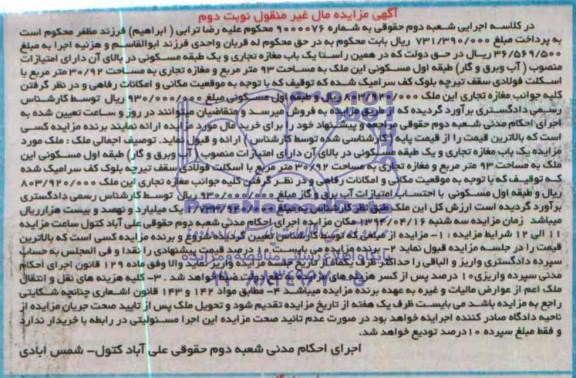 آگهی مزایده مال غیر منقول نوبت دوم
در کلاسه اجرایی شعبه دوم حقوقی به شماره ۹۰۰۰۰۷۶ محکوم علیه رضا ترابی ( ابراهیم) فرزند مظفر محکوم است
به پرداخت مبلغ ۷۳۱/۳۹۰/۰۰۰ ریال بابت محکوم به در حق محکوم له قربان واحدی فرزند ابوالقاسم و هزینه اجرا به مبلغ
۳۶/۵۶۹/۵۰۰ ریال در حق دولت که در همین راستا یک باب مغازه تجاری و یک طبقه مسکونی در بالای آن دارای امتیازات
منصوب ( آب وبرق و گاز) طبقه اول مسکونی این ملک به مساحت ۹۳ متر مربع و مغازه تجاری به مساحت ۳۰/۹۲ متر مربع با
اسکلت فولادی سقف تیرچه بلوک کف سرامیک شده که توقیف که با توجه به موقعیت مکانی و امکانات رفاهی و در نظر گرفتن
کلیه جوانب مغازه تجاری این ملک ریال و طبقه اول مسکونی مبلغ ۹۳۰/۰۰۰/۰۰۰ ریال توسط کارشناس
رسمی دادگستری برآورد گردیده که از طریق مزایده به فروش میرسد و متقاضیان میتوانند در روز و ساعت تعیین شده به
اجرای احکام مدنی شعبه دوم حقوقی مراجعه و پیشنهاد خود را برای خرید مال مورد مزایده ارائه نمایند برنده مزایده کسی
است که بالاترین قیمت را از قیمت پایه کارشناسی شده توسط کارشناس را ارائه و قبول نماید. توصیف اجمالی ملک : ملک مورد
مزایده یک باب مغازه تجاری و یک طبقه مسکونی در بالای آن دارای امتیازات منصوب ( آب وبرق و گاز) طبقه اول مسکونی این
ملک به مساحت ۹۳ متر مربع و مغازه تجاری به مساحت ۳۰/۹۲ متر مربع با اسکلت فولادی سقف تیرچه بلوک کف سرامیک شده
که توقیف که با توجه به موقعیت مکانی و امکانات رفاهی و در نظر گرفتن کلیه جوانب مغازه تجاری این ملک ۸۰۳/۹۲۰/۰۰۰
ریال و طبقه اول مسکونی با احتساب امتیازات آب برق و گاز مبلغ ۹۳۰/۰۰۰/۰۰۰ ریال توسط کارشناس رسمی دادگستری
برآورد گردیده است ارزش کل این ملک طبق نظر کارشناس به مبلغ یک میلیارد و نهصد و بیست هزار ریال
میباشد زمان مزایده سه شنبه ۱۳۹۴/۰۴/۱۶ مکان مزایده اجرای احکام مدنی شعبه دوم حقوقی علی آباد کتول ساعت مزایده
۱۱ الی ۱۲ شرایط مزایده :۱- مزایده از مبلغی که توسط کارشناس تعیین گردیده شروع و برنده مزایده کسی است که بالاترین
قیمت را در جلسه مزایده قبول نماید ۲- برنده مزایده می بایست ده درصد قیمت پیشنهادی را نقدا و فی المجلس به حساب
سپرده دادگستری واریز و الباقی را حداکثر ظرف از تاریخ جلسه مزایده واریز نماید والا وفق ماده ۱۲۹ قانون اجرای احکام
مدنی سپرده واریزی۱۰ درصد پس از کسر هزینه های خواهد شد. ۳- کلیه هزینه های نقل و انتقال
ملک اعم از عوارض مالیات و غیره به عهده برنده مزایده میباشد ۴- مطابق مواد ۱۴۲ و ۱۴۳ قانون اشعاری چنانچه شکایتی
راجع به مزایده باشد می بایست ظرف یک هفته از تاریخ مزایده تقدیم شود و تحویل ملک پس از تایید صحت جریان مزایده از
ناحیه دادگاه صادر کننده اجراییه خواهد بود در صورت عدم تائید صحت مزایده این اجرا مسئولیتی در رابطه با خریدار ندارد
و فقط مبلغ سپرده ۱۰درصد تودیع خواهد شد.
اجرای احکام مدنی شعبه دوم حقوقی علی آباد کتول- شمس ابادی